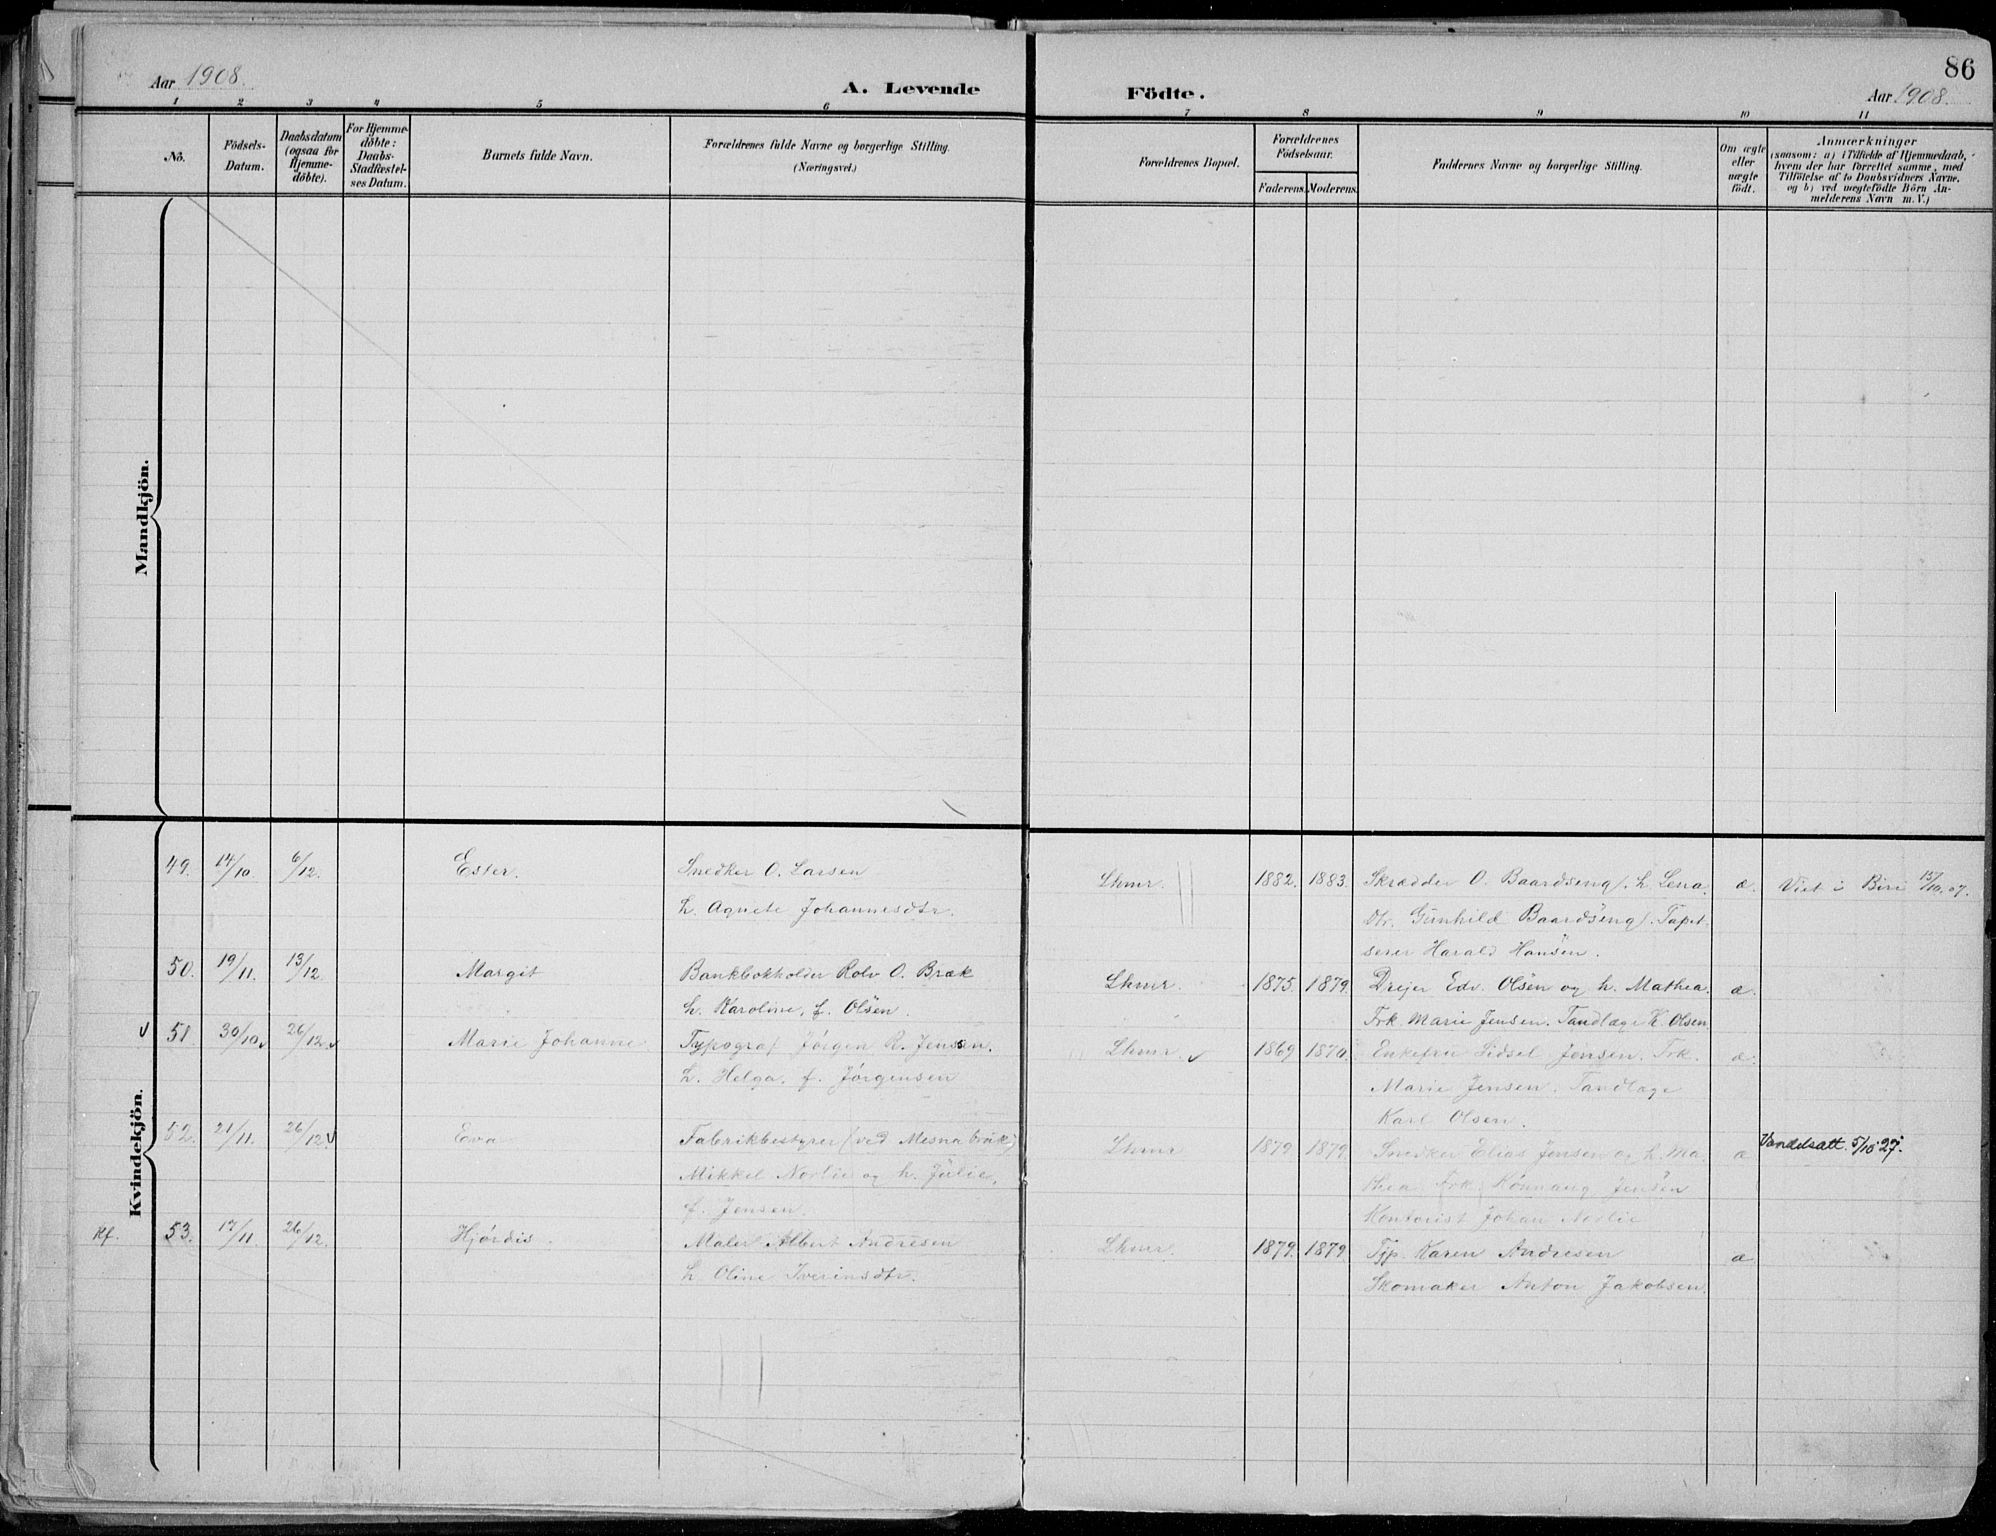 86
Aar 1908.
A. Levende Födte.
Aar 1908.
1 2 3 4 5 6 7 8 9 10 11
No.
Födsels-
Datum.
Daabsdatum
(ogsaa for
Hjemme-
döbte).
For Hjemme-
döbte:
Daabs-
Stadfæstel-
ses Datum.
Barnets fulde Navn.
Forældrenes fulde Navne og borgerlige Stilling.
(Næringsvei.)
Forældrenes Bopæl.
Forældrenes
Födselsaar.
Faderens. Moderens.
Faddernes Navne og borgerlige Stilling.
Om ægte
eller
uægte
födt.
Anmærkninger
(saasom: a) i Tilfælde af Hjemmedaab,
hvem der har forrettet samme, med
Tilföielse af to Daabsvidners Navne,
og b) ved uægtefödte Börn An-
melderens Navn m. V.)
Mandkjön.
Kvindekjön.
49. 14/10. 6/12. Ester. Snedker O. Larsen Lhmr. 1882. 1883. Skrædder O. Baardseng, h. Lena. æ. Viet i Biri 15/10.07.
h. Agnete Johannesdtr. Dtr. Gunhild Baardseng. Tapet-
serer Harald Hansen.
50. 19/11. 13/12 Margit Bankbokholder Rolv O. Bræk Lhmr. 1875. 1879. Drejer Edv. Olsen og h. Mathea. æ.
h. Karoline, f. Olsen. Frk. Marie Jensen. Tandlæge K. Olsen
51 30/10 26/12. Marie Johanne Typograf Jörgen R. Jensen. Lhmr. 1869 1870. Enkefru Sidsel Jensen. Frk. æ.
h. Helga, f. Jørgensen Marie Jensen. Tandlæge
Karl Olsen.
52. 21/11. 26/12. Eva Fabrikbestyrer (ved Mesna bruk) Lhmr 1879 1879. Snedker Elias Jensen og h. Ma- æ Vandelsatt. 5/10 27.
Mikkel Norlie og h. Julie, thea. Frk. Rønnaug Jensen
f. Jensen. Kontorist Johan Norlie
Kf. 53. 17/11. 26/12. Hjørdis. Maler Albert Andresen Lhmr. 1879. 1879. Tjp. Karen Andresen æ.
h. Oline Iverinsdtr. Skomaker Anton Jakobsen.